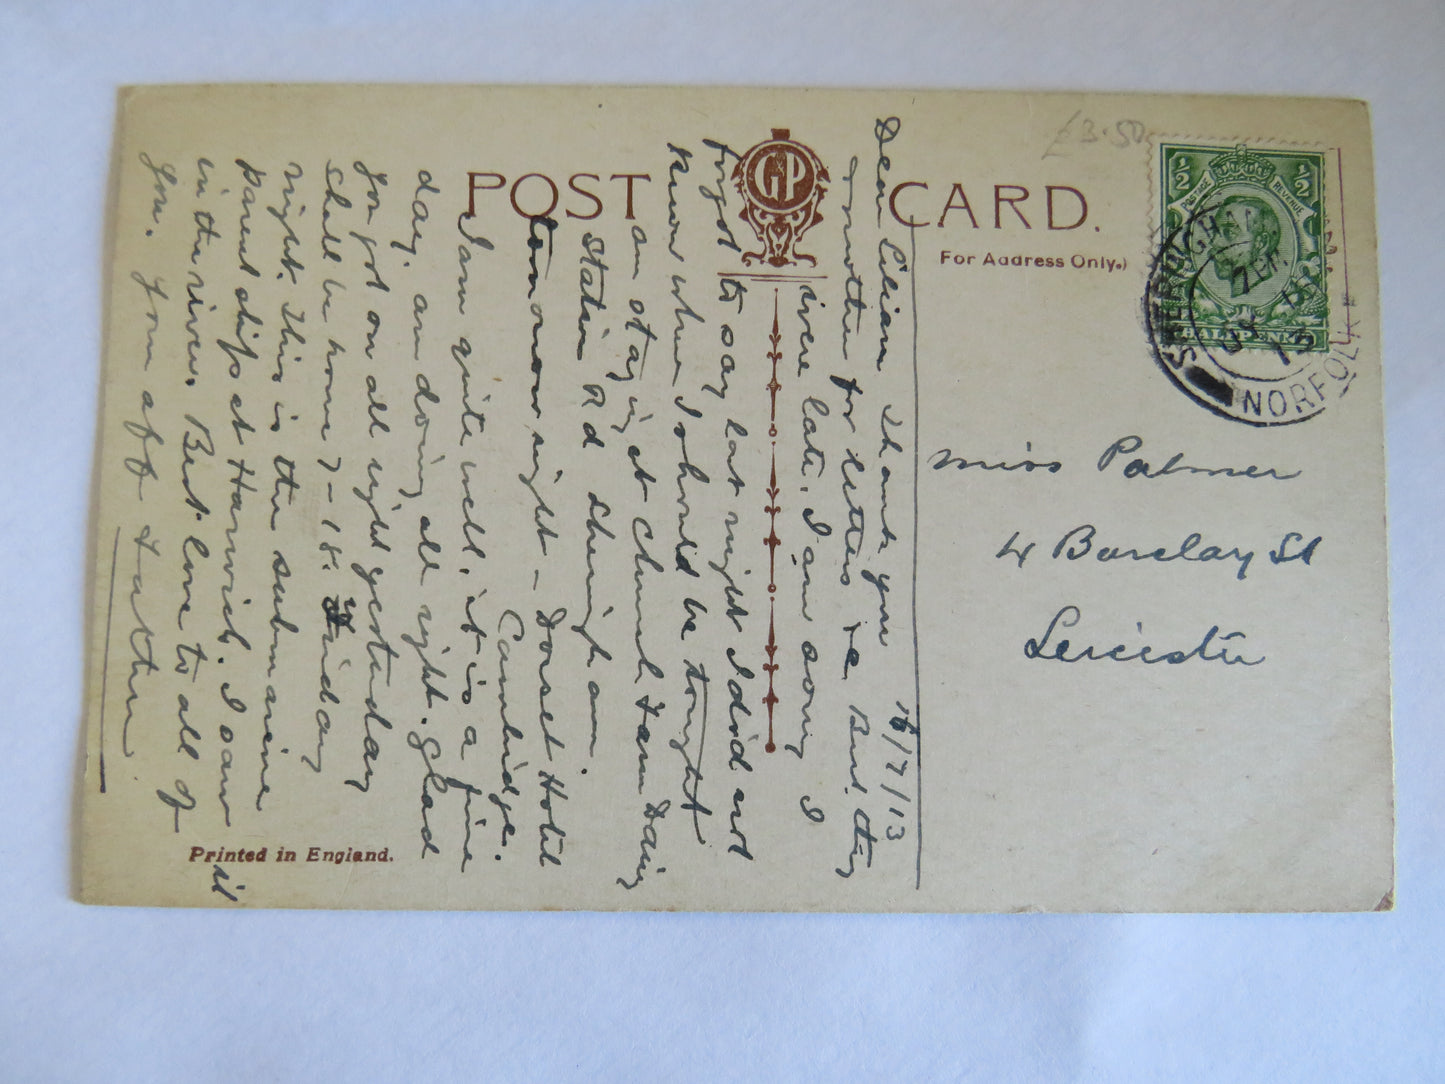 POST CARD.
GP
For Address Only.)
£3.50
½ ½
POSTAGE REVENUE
HALFPENNY
SHIPDHAM
NORFOLK
JY 16
13
Miss Palmer
4 Barclay St
Leicester
16/7/13
Dear Lilian Thank you
& mother for letters &c But they
were late. I am sorry I
forgot to say last night I did not
know where I should be tonight
am staying at Church Farm Dairy
Station Rd
tomorrow night – Dorset Hotel
Cambridge.
I am quite well. it is a fine
day. am doing all right. Glad
you got on all right yesterday
shall be home 7-18. Friday
night. This is the submarine
parent ship at Harwich. I saw it
in the river. Best love to all of
you. Your aff Father
Printed in England.